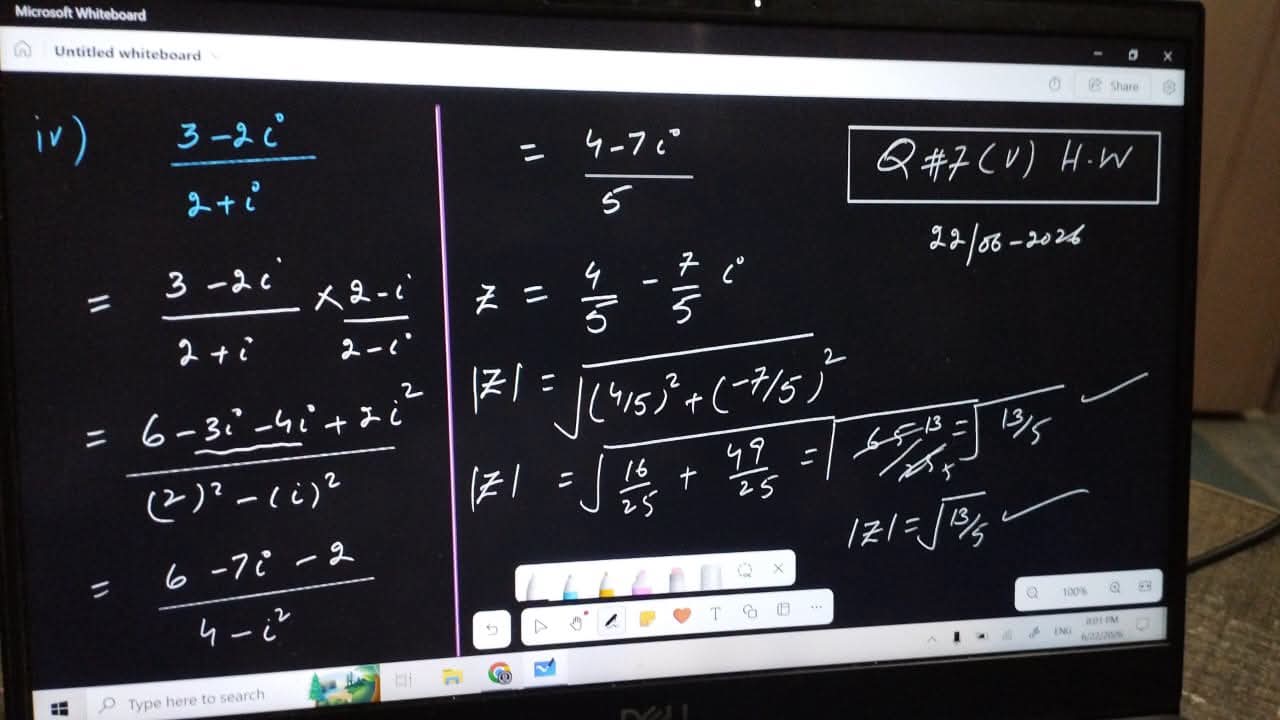 Microsoft Whiteboard
Untitled whiteboard
Share
iv) 3-2i / 2+i
= 3-2i / 2+i × 2-i / 2-i
= 6-3i-4i+2i² / (2)²-(i)²
= 6-7i-2 / 4-i²
= 4-7i / 5
z = 4/5 - 7/5 i
|z| = √(4/5)²+(-7/5)²
|z| = √16/25 + 49/25 = √65 13/25 5 = √13/5
|z| = √13/5
Q #7 (v) H.W
22/06-2026
T
100%
Type here to search
ENG
8:01 PM
6/22/2026
DELL